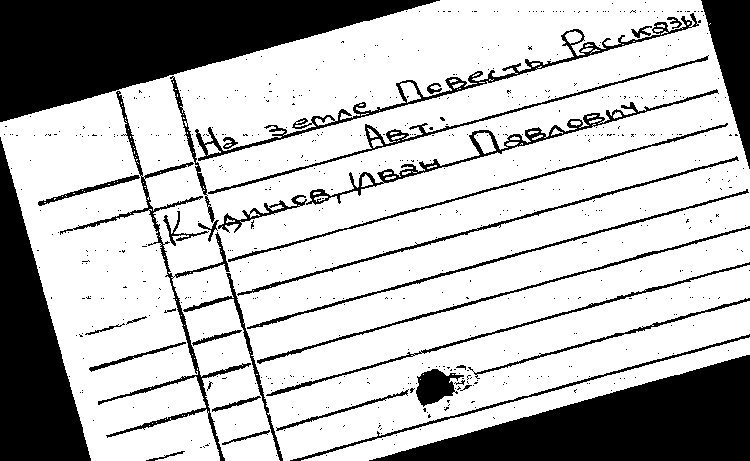 На земле. Повесть. Рассказы.
Авт.:
Кудинов, Иван Павлович.